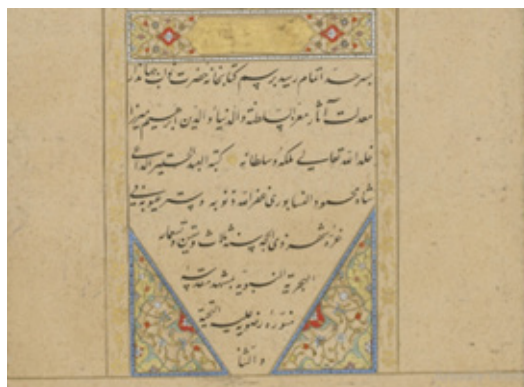 بسرحد اتمام رسید برسم کتابخانه حضرت نواب جهاندار
معدلت آثار معز السلطنة والدنیا والدین ابرهیم میرزا
خلد الله تعالی ملکه وسلطانه کتبه العبد الداعی
شاه محمود النسابوری غفر الله ذنوبه وستر عیوبه فی
غره شهر ذی الحجه سنه ثلاث وستین وتسعمایه
الهجریة النبویه بمشهد مقدسه
منوره رضویه علیه التحیة
والثنا